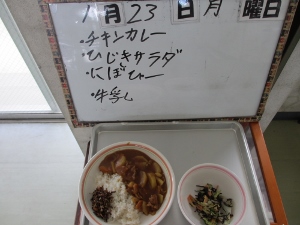 1月23日 月曜日
・チキンカレー
・ひじきサラダ
・にぼし
・牛乳